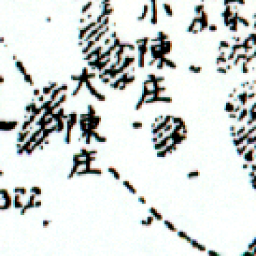 小陳庄
大陳庄